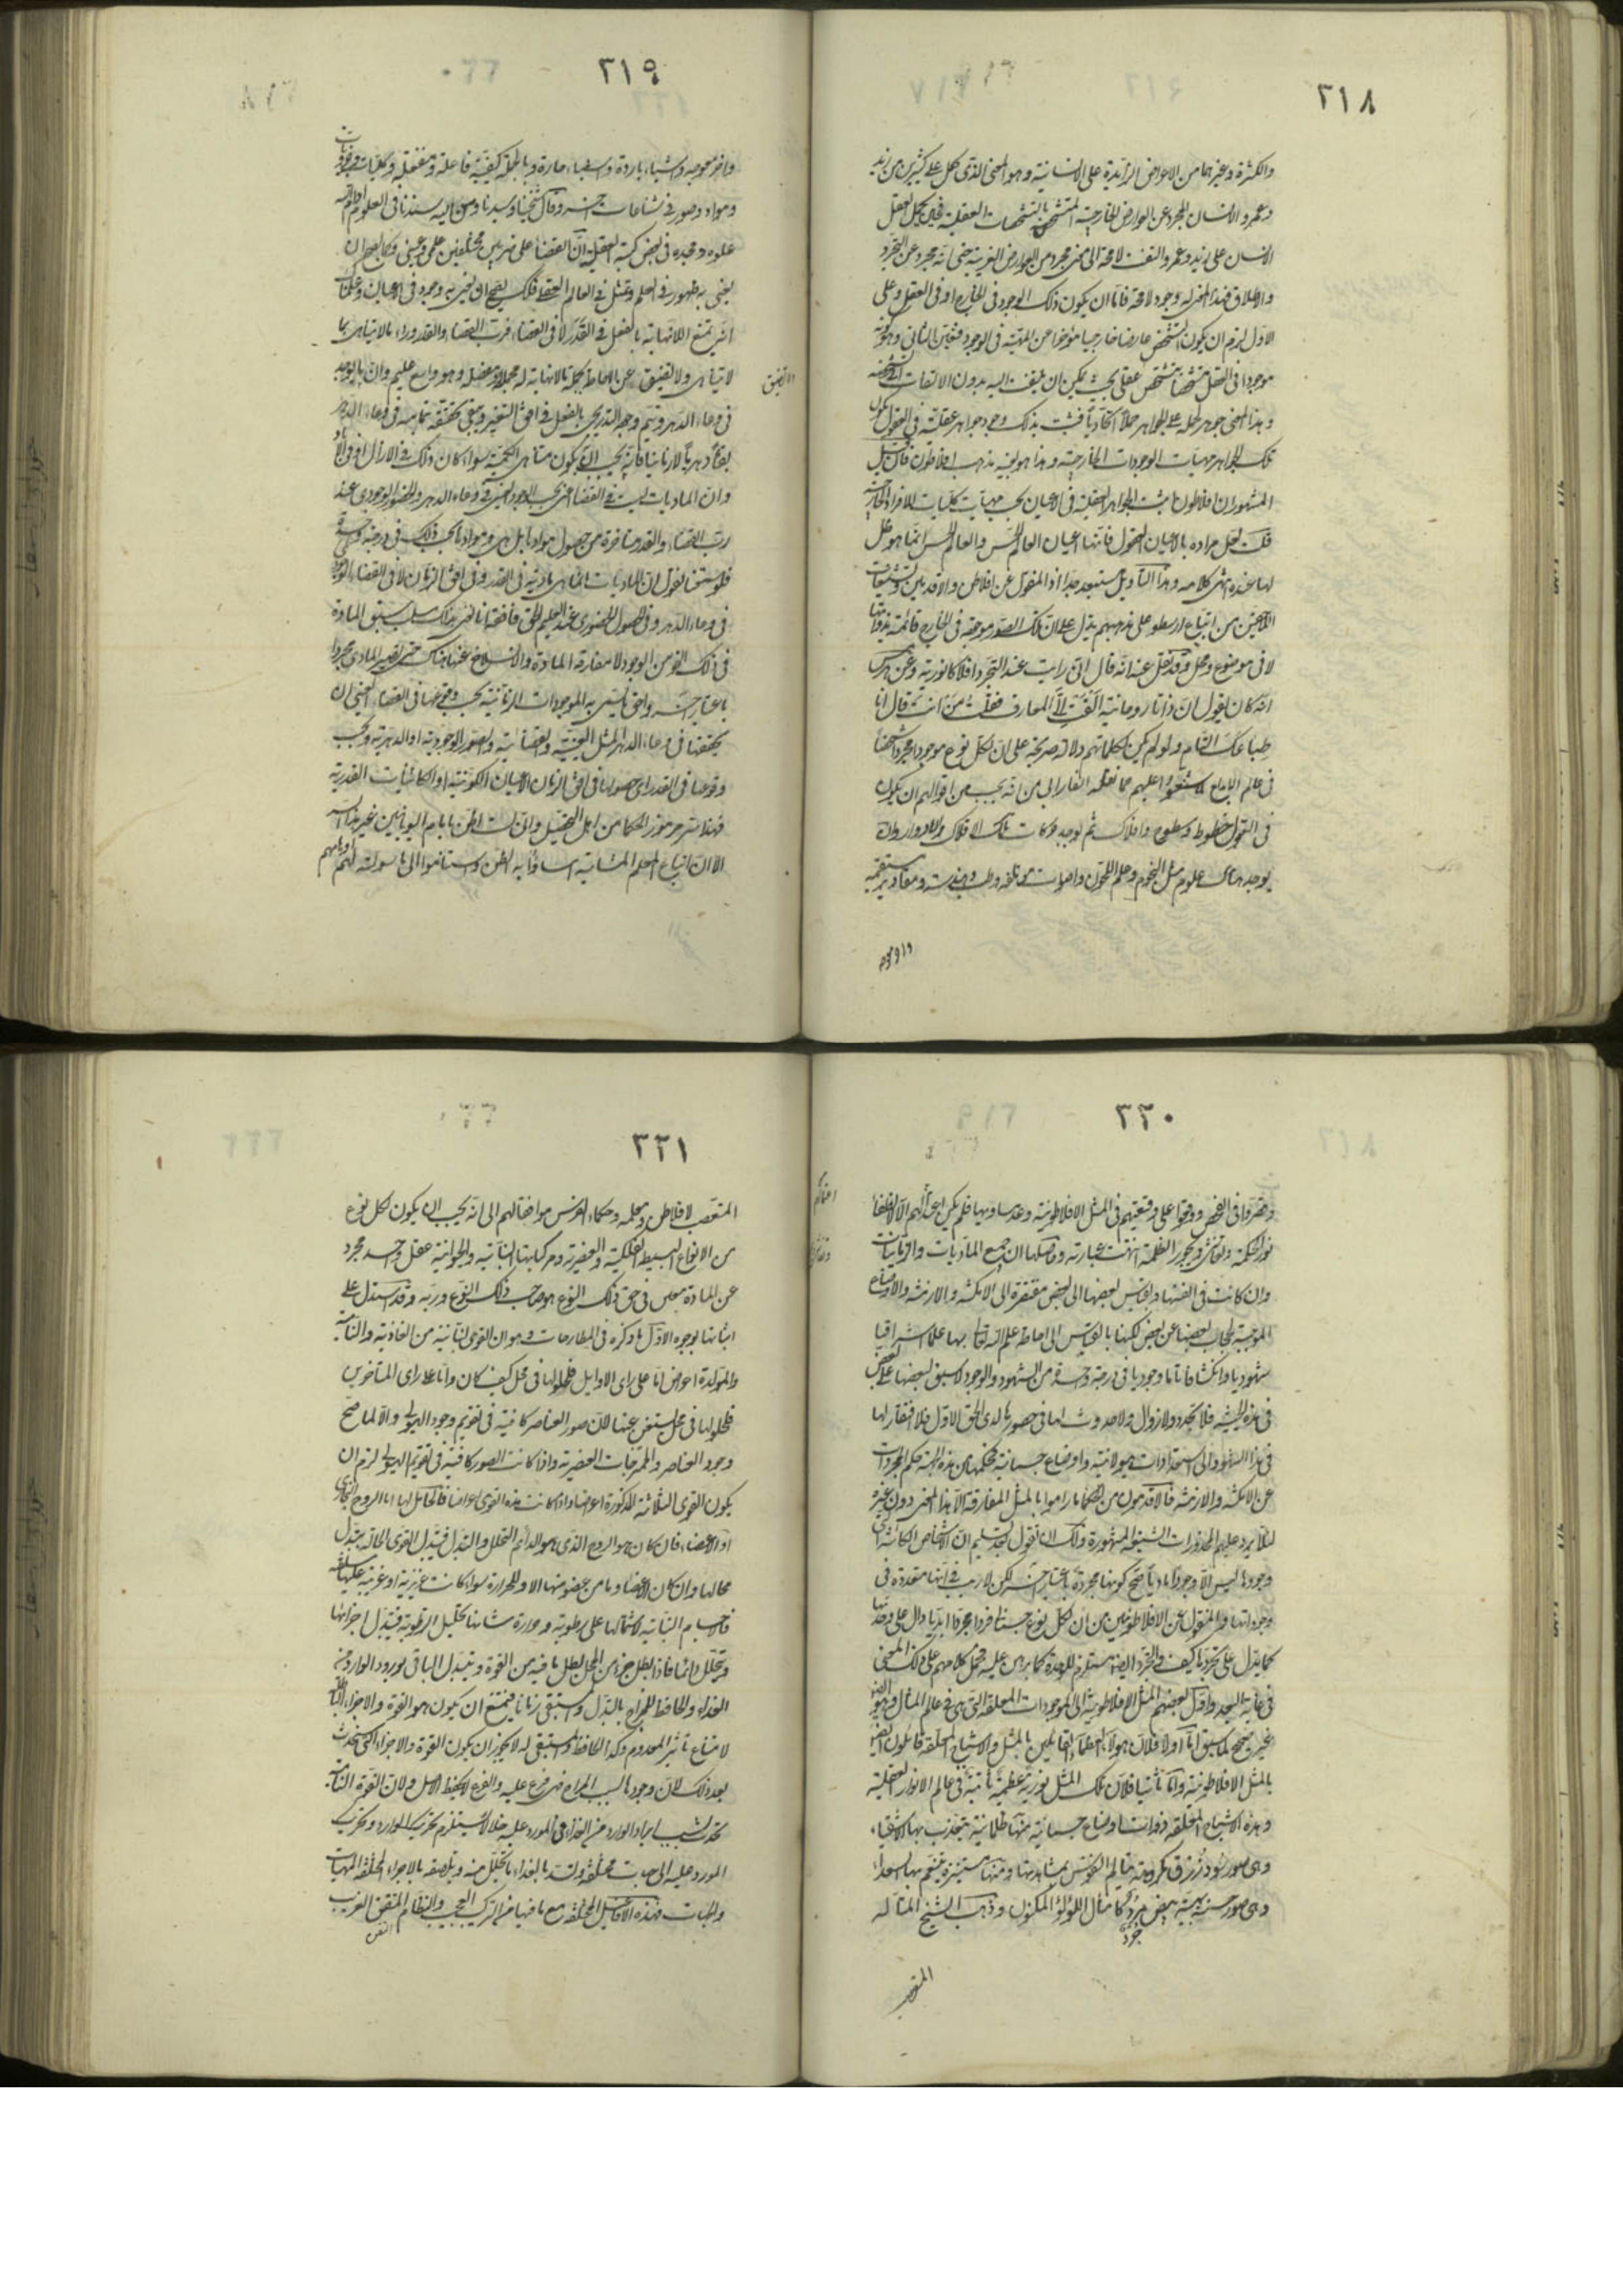 ٣١٨
والكثرة وغيرهما من الاعراض الزائدة على الانسانية وهو المعنى الذى يحمل على كثيرين من زيد
وعمرو والانسان المجرد عن العوارض الخارجية المتشخص بالتشخصات العقلية فحين يحمل العقل
الانسان على زيد وعمرو التفت لا محة الى معنى مجرد من العوارض الغريبة حتى انه مجرد عن التجرد
والاطلاق فهذا المعنى له وجود لا محة فاما ان يكون ذلك الوجود فى الخارج او فى العقل وعلى
الاول لزم ان يكون الشخص عارضا خارجيا مؤخرا عن المهية فى الوجود فتعين الثانى وهو كونه
موجودا فى العقل متشخصا بتشخص عقلى بحيث يمكن ان يلتفت اليه بدون الالتفات الى تشخصه
وهذا المعنى جوهر لحمله على الجواهر حملا اتحاديا فثبت بذلك وجود جواهر عقلية فى العقول يكون
تلك الجواهر مهيات الموجودات الخارجية وهذا هو بعينه مذهب افلاطون فان قيل
المشهور ان افلاطون يثبت الجواهر العقلية فى الاعيان بحسب مهيات كليات الافراد الخارجية
قلت لعل مراده بالاعيان العقول فانها اعيان العالم الحس والعالم الحس انما هو ظل
لها عنده انتهى كلامه وهذا التأويل مستبعد جدا اذ المنقول عن افلاطن والاقدمين وتشنيعات
اللاحقين من اتباع ارسطو على مذهبهم يدل على ان تلك الصور موجودة فى الخارج قائمة بذواتها
لا فى موضوع ومحل وقد نقل عنه انه قال انى رايت عند التجرد افلاكا نورية وعن هرمس
انه كان يقول ان ذاتا روحانية القت الى المعارف فقلت من انت فقال انا
طباعك التام ولو لم يكن لكلماتهم دلالة صريحة على ان لكل نوع موجودا مجردا شخصيا
فى عالم الابداع لما شنعوا عليهم مما نقله الفارابى من انه يجب من اقوالهم ان يكون
فى العقول خطوط وسطوح وافلاك ثم توجد حركات تلك الافلاك والادوار وان
يوجد هناك علوم مثل النجوم وعلم اللحون واصوات مؤتلفه وطب وهندسه ومقادير مستقيمه
واخر معوجه
٣١٩
واخر معوجه واشياء باردة واشياء حارة وبالجملة كيفيته فاعلة ومنفعله وكليات وجزئيات
ومواد وصور فى شناعات اخر وقال شيخنا وسيدنا ومن اليه سندنا فى العلوم ادام الله
علوه ومجده فى بعض كتبه العقلية ان القضاء على ضربين مختلفين علمى وعينى وكما يصح ان
يعنى به ظهور فى العلم وتمثل فى العالم العقلى فكذلك يصح ان يعنى به وجود فى الاعيان
انى تمتنع اللانهاية بالفعل فى القدر لا فى القضاء فرب القضاء والقدر وراء ما لا يتناهى بما
لا يتناهى ولا تضيق عن الاحاطة بجملة ما لانهاية له مجملا ومفصلا وهو واسع عليم وان ما يوجد
فى وعاء الدهر ويتم وجوده التدريجى بالفعل فى افق التغير ويبقى بتحققه بتمامه فى وعاء الدهر
بقاء دهريا لا زمانيا فانه يجب ان يكون متناهى الكمية سواء كان ذلك فى الازال او فى الاباد
وان الماديات ليست فى القضاء اعنى بحسب الوجود العينى فى وعاء الدهر والحضور الوجودى عند
رب القضاء والقدر متاخرة عن حصول موادها بل هى وموادها بحسب ذلك فى درجة واحدة
فلو سمعنا نقول ان الماديات انما هى مادية فى القدر وفى افق الزمان لا فى القضاء الوجودى
فى وعاء الدهر وفى الحصول الحضورى عند العليم الحق فافقه انا نعنى بذلك سلب سبق المادة
فى ذلك النحو من الوجود لا مفارقة المادة والانسلاخ عنها هناك حتى تصير المادى مجردا
باعتبار اخر واحق ما يسمى به الموجودات الزمانية بحسب وقوعها فى القضاء العينى ان
تحققها فى وعاء الدهر المثل العينية والقضائية والصور الوجودية او الدهرية وبحسب
وقوعها فى القدر اى حصولها فى افق الزمان الاعيان الكونية او الكائنات القدرية
فهذا سر مرموز الحكماء من اهل التحصيل وانى لست اظن بامام اليونانيين غير هذا
الا ان اتباع المعلم المشائية اساؤا به الظن واستناموا الى ما سولته لهم اوهامهم
٣٢٠
وقصروا فى الفحص ووقعوا على وقيعتهم فى المثل الافلاطونية وعد مساويها فلم يكن
نور الحكمة وتفاشى ديجور الظلمة انتهت عبارته وحاصلها ان جميع الماديات والزمانيات
وان كانت فى انفسها وبقياس بعضها الى بعض مفتقرة الى الامكنة والازمنة والاوضاع
الموجبة لحجاب بعضها عن بعض لكنها بالقياس الى احاطة علم الله تعالى بها علما اشراقيا
شهوديا وانكشافا تاما وجوديا فى درجة واحدة من الشهود والوجود لا سبق لبعضها على بعض
فى هذه الحيثية فلا تجدد ولا زوال ولا حدوث لها فى حضورها لدى الحق الاول فلا افتقار لها
فى هذا الشهود الى استعدادات هيولانية واوضاع جسمانية فحكمها من هذه الجهة حكم المجردات
عن الامكنة والازمنة فالاقدمون من الحكماء ما راموا بالمثل المفارقة الا هذا المعنى دون غيره
لئلا يرد عليهم المحذورات الشنيعة المشهورة ولك ان تقول بعد تسليم ان الاشخاص الكائنة
وجودها ليس الا وجودا ماديا صح كونها مجردة باعتبار اخر لكن لا ريب فى انها متعددة فى
وجوداتها والمنقول عن الافلاطونيين ان لكل نوع جسمانى فردا مجردا ابديا دال على وحدتها
كما يدل على تجردها كيف والتجرد ايضا مستلزم للوحدة كما برهن عليه فحمل كلامهم على ذلك المعنى
فى غاية البعد واول بعضهم المثل الافلاطونية الى الموجودات المعلقة التى هى فى عالم المثال وهو ايضا
غير صحيح لما سبق اما اولا فلان هؤلاء العظماء القائلين بالمثل والاشباح المعلقة قائلون ايضا
بالمثل الافلاطونية واما ثانيا فلان تلك المثل نورية عظيمة ثابتة فى عالم الانوار العقلية
وهذه الاشباح المعلقة ذوات اوضاع جسمانية منها ظلمانية يتعذب بها الاشقياء
وهى صور سود زرق مكروهة يتالم النفوس بمشاهدتها ومنها مستنيرة يتنعم بها السعداء
وهى صور حسنة بهية بيض مرد كامثال اللؤلؤ المكنون وذهب الشيخ المتاله
جرد
المتعصب
٣٢١
المتعصب لافلاطن ومعلميه وحكماء الفرس موافقا لهم الى انه يجب ان يكون لكل نوع
من الانواع البسيطة الفلكية والعنصرية ومركباتها النباتية والحيوانية عقل واحد مجرد
عن المادة معتن فى حق ذلك النوع هو صاحب ذلك النوع وربه وقد استدل على
اثباتها بوجوه الاول ما ذكره فى المطارحات وهو ان القوى النباتية من الغاذية والنامية
والمولدة اعراض اما على راى الاوايل فلحلولها فى محل كيف كان واما على راى المتاخرين
فلحلولها فى محل يستغنى عنها لان صور العناصر كافية فى تقويم وجود الهيولى والا لما صح
وجود العناصر والممتزجات العنصرية واذا كانت الصور كافية فى تقويم الهيولى لزم ان
يكون القوى الثلاثة المذكورة اعراضا واذا كانت هذه القوى اعراضا فالحامل لها اما الروح البخارى
او الاعضاء فان كان هو الروح الذى هو الدائم التحلل والتبدل فيتبدل القوى الحالة بتبدل
محالها وان كان الاعضاء وما من عضو منها الا وللحرارة سواء كانت غريزية او غريبة عليها سلطنة
فالاجسام النباتية لاشتمالها على رطوبة وحرارة شانها تحليل الرطوبة فيتبدل اجزائها
ويتحلل دائما فاذا بطل جزء من المحل بطل ما فيه من القوة ويتبدل الباقى بورود الوارد من
الغذاء والحافظ للمزاج بالبدل والمستبقى زمانا يمتنع ان يكون هو القوة والاجزاء الباطلة
لامتناع تاثير المعدوم وكذا الحافظ والمستبقى له لا يجوز ان يكون القوة والاجزاء التى ستحدث
بعد ذلك لان وجودها بسبب المزاج فهى فرع عليه والفرع لا يحفظ الاصل ولان القوة النامية
تحدث بسبب ايراد الوارد من الغذاء فى المورد عليه خللا يستلزم تحريك الوارد وتحريك
المورد عليه الى جهات مختلفة ولتسد بالغذاء ما تحلل منه وتلصقه بالاجزاء المختلفة المهيات
والجهات فهذه الافاعيل المختلفة مع ما فيها من التركيب العجيب والنظام المتقن الغريب